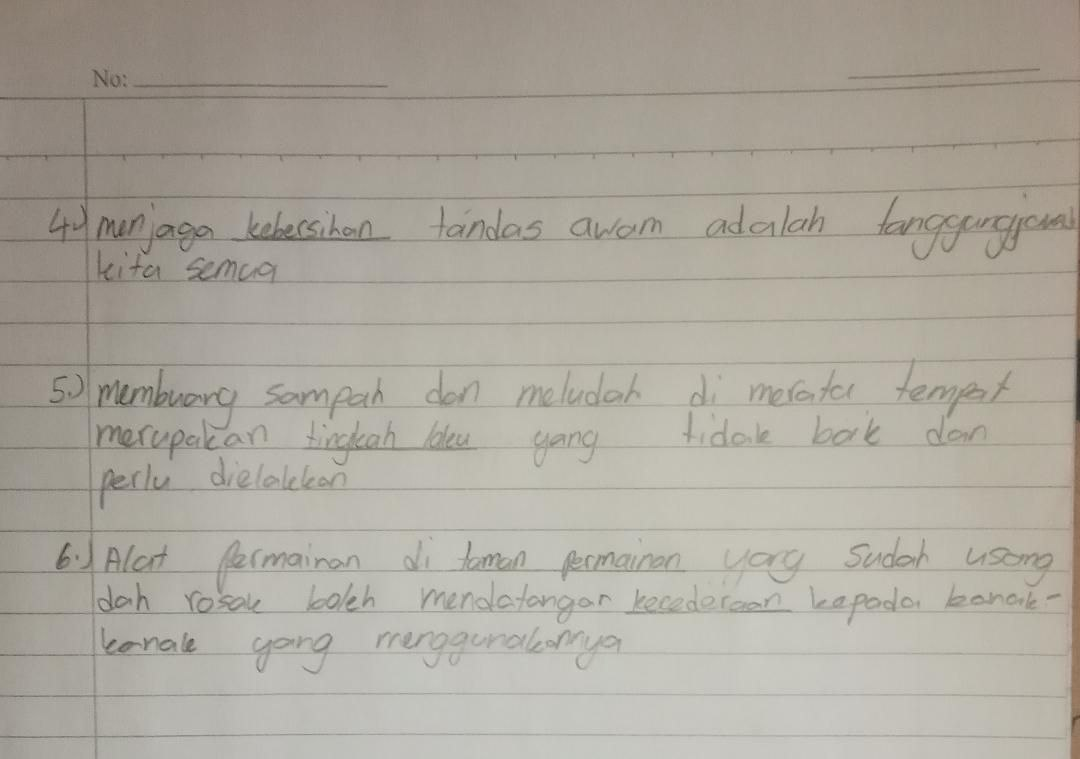 No:
4.) menjaga kebersihan tandas awam adalah tanggungjawab
kita semua
5.) membuang sampah dan meludah di merata tempat
merupakan tingkah laku yang tidak baik dan
perlu dielakkan
6.) Alat permainan di taman permainan yang sudah usang
dah rosak boleh mendatangan kecederaan kepada kanak-
kanak yang menggunakannya